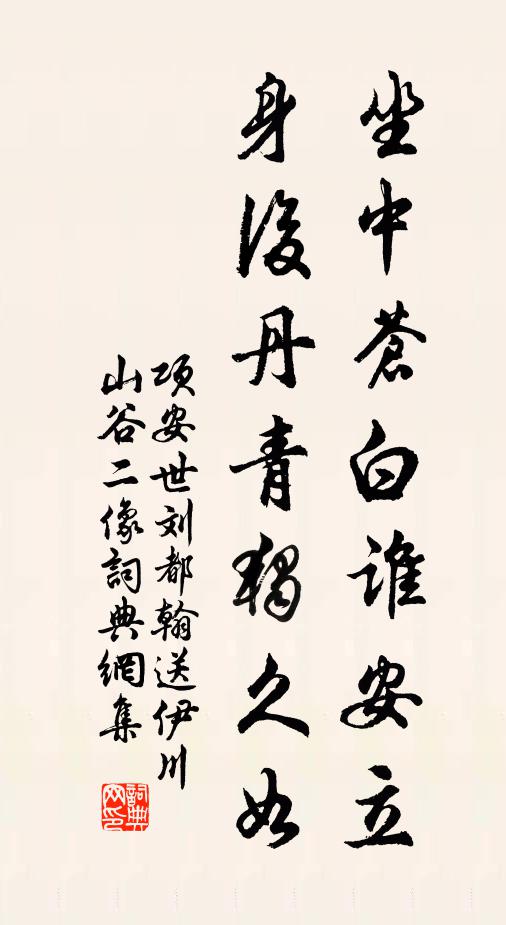 坐中蒼白誰安立
身後丹青獨久如
项安世刘都翰送伊川
山谷二像詞典網集
詞典網印